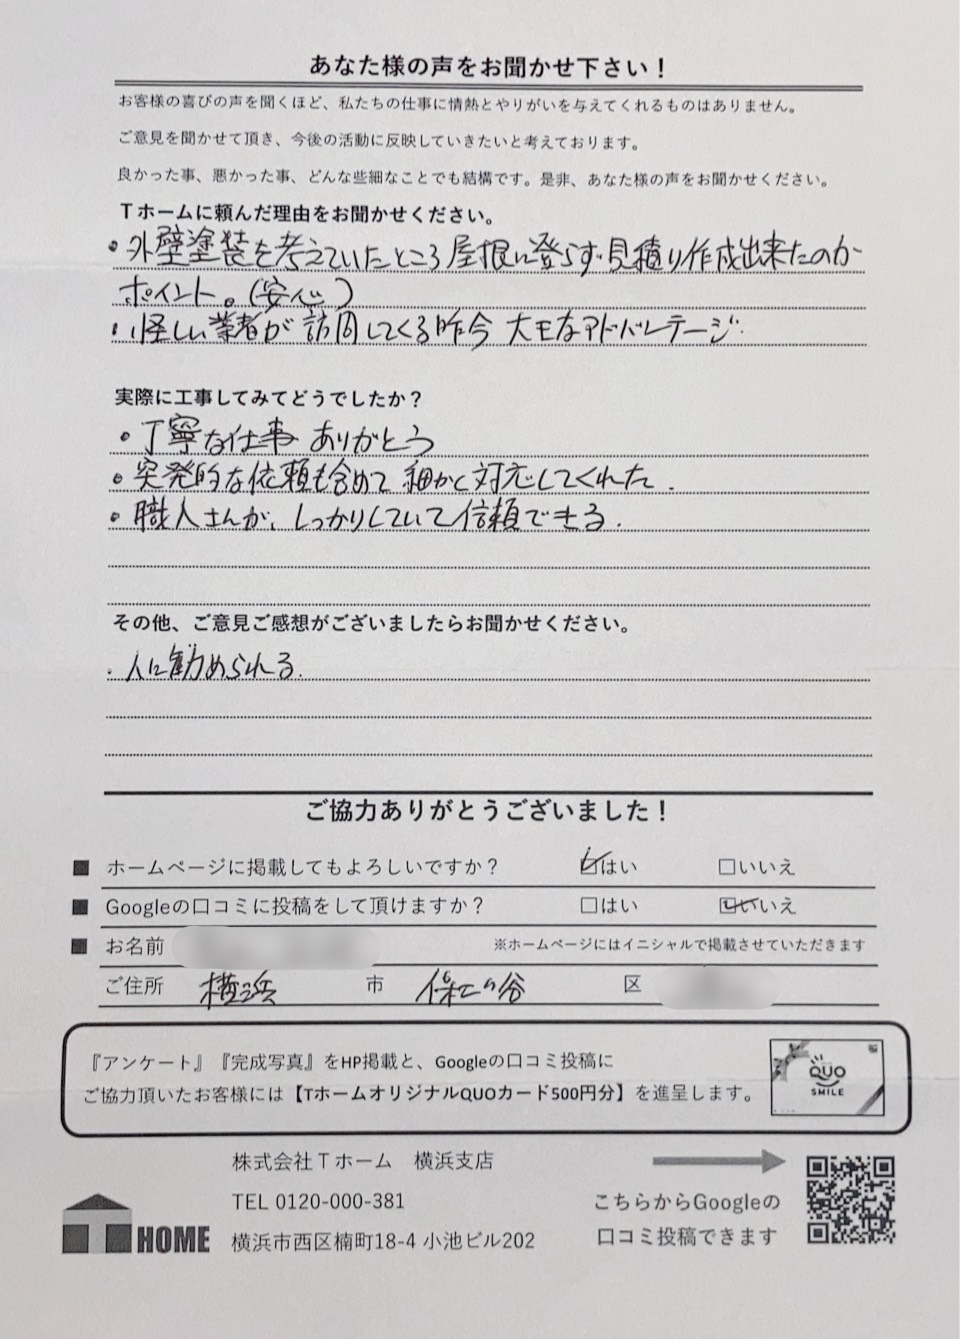 あなた様の声をお聞かせ下さい！
お客様の喜びの声を聞くほど、私たちの仕事に情熱とやりがいを与えてくれるものはありません。
ご意見を聞かせて頂き、今後の活動に反映していきたいと考えております。
良かった事、悪かった事、どんな些細なことでも結構です。是非、あなた様の声をお聞かせください。
Tホームに頼んだ理由をお聞かせください。
・外壁塗装を考えていたところ屋根に登らず見積り作成出来たのが
ポイント。(安心)
・怪しい業者が訪問してくる昨今 大キなアドバンテージ.
実際に工事してみてどうでしたか？
・丁寧な仕事 ありがとう
・突発的な依頼も含めて 細かく対応してくれた.
・職人さんが、しっかりしていて信頼できる.
その他、ご意見ご感想がございましたらお聞かせください。
・人に勧められる.
ご協力ありがとうございました！
■ ホームページに掲載してもよろしいですか？ ☑はい □いいえ
■ Googleの口コミに投稿をして頂けますか？ □はい ☑いいえ
■ お名前 ※ホームページにはイニシャルで掲載させていただきます
ご住所 横浜 市 保土ヶ谷 区
『アンケート』『完成写真』をHP掲載と、Googleの口コミ投稿に
ご協力頂いたお客様には【TホームオリジナルQUOカード500円分】を進呈します。
QUO
SMILE
株式会社Tホーム 横浜支店
TEL 0120-000-381
横浜市西区楠町18-4 小池ビル202
T HOME
こちらからGoogleの
口コミ投稿できます